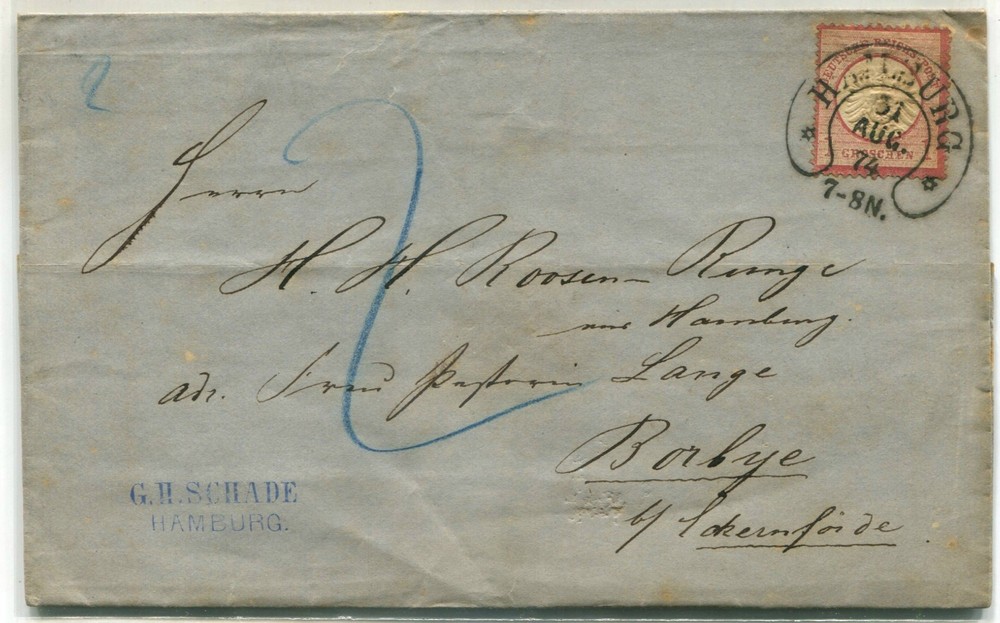 2
DEUTSCHE REICHS-POST
GROSCHEN
HAMBURG
31
AUG.
74
7-8N.
2
Herrn
H. H. Roosen-Runge
aus Hamburg.
adr. Frau Pastorin Lange
Borbye
b/ Eckernförde
G.H.SCHADE
HAMBURG.